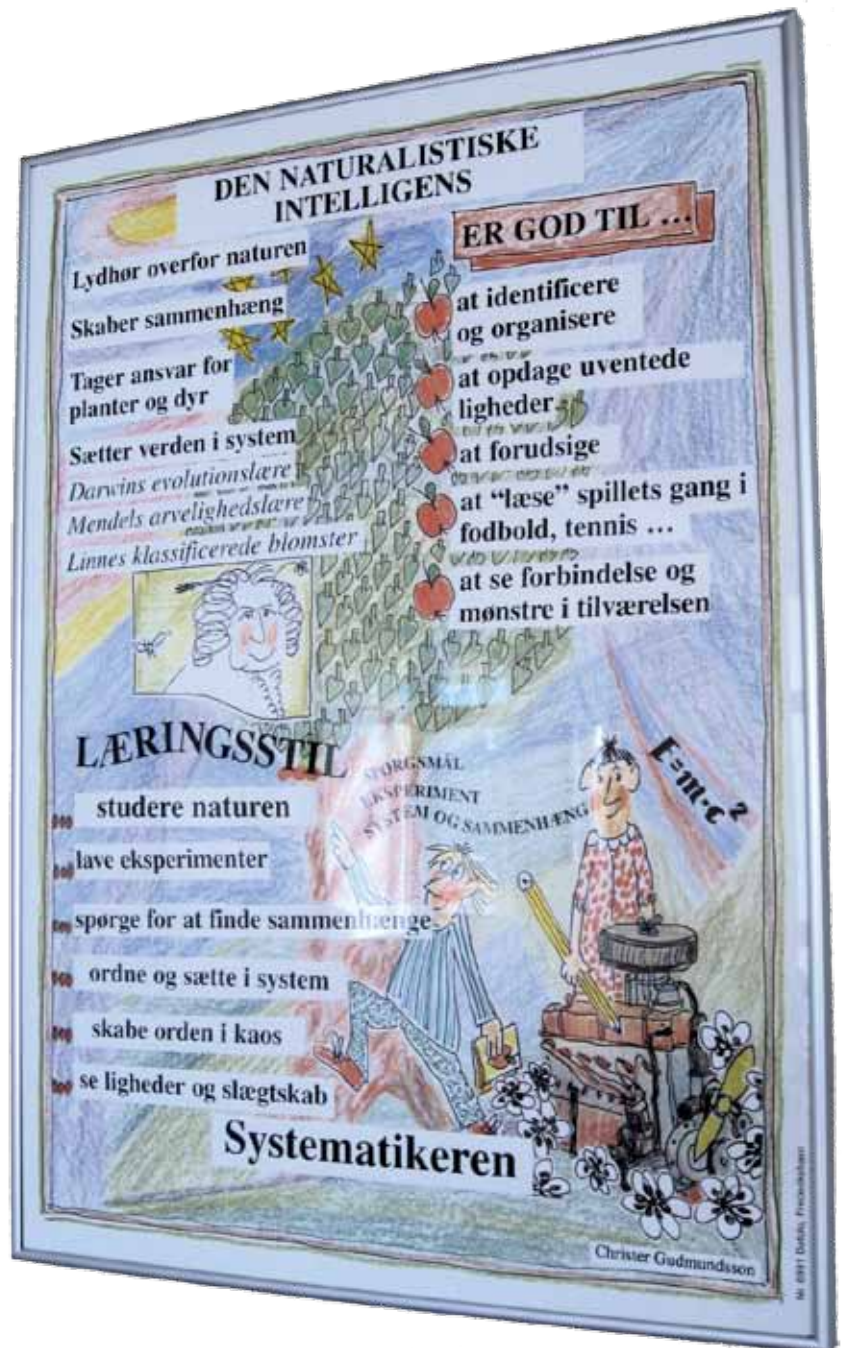 DEN NATURALISTISKE
INTELLIGENS
Lydhør overfor naturen
Skaber sammenhæng
Tager ansvar for
planter og dyr
Sætter verden i system
Darwins evolutionslære
Mendels arvelighedslære
Linnes klassificerede blomster
ER GOD TIL ...
at identificere
og organisere
at opdage uventede
ligheder
at forudsige
at “læse” spillets gang i
fodbold, tennis ...
at se forbindelse og
mønstre i tilværelsen
LÆRINGSSTIL
studere naturen
lave eksperimenter
spørge for at finde sammenhænge
ordne og sætte i system
skabe orden i kaos
se ligheder og slægtskab
SPØRGSMÅL
EKSPERIMENT
SYSTEM OG SAMMENHÆNG
E=m·c²
Systematikeren
Christer Gudmundsson